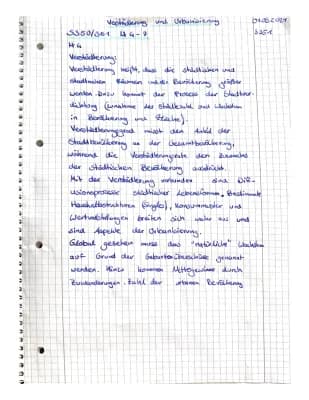 Verstädterung und Urbanisierung
S350/351 M 4-7
M.4
Verstädterung:
Verstädterung heißt, dass die städtischen und
städtischen Räumen und die Bevölkerung größer
werden. Dazu kommt der Prozess der Stadtver-
dichtung (Zunahme der Städtezahl und Wachstum
in Bevölkerung und Fläche).
Verstädterungsgrad misst den Anteil der
Stadtbevölkerung an der Gesamtbevölkerung,
während die Verstädterungsrate den Zuwachs
der städtischen Bevölkerung ausdrückt.
Mit der Verstädterung verbunden sind Dif-
fusionsprozesse städtischer Lebensformen. Bestimmte
Haushaltsstrukturen (Singles), Konsummuster und
Wertvorstellungen breiten sich weiter aus und
sind Aspekte der Urbanisierung.
Global gesehen muss das "natürliche" Wachstum
auf Grund der Geburtenüberschüsse genannt
werden. Hinzu kommen Mittegewinne durch
Zuwanderungen. Zahl der urbanen Bevölkerung